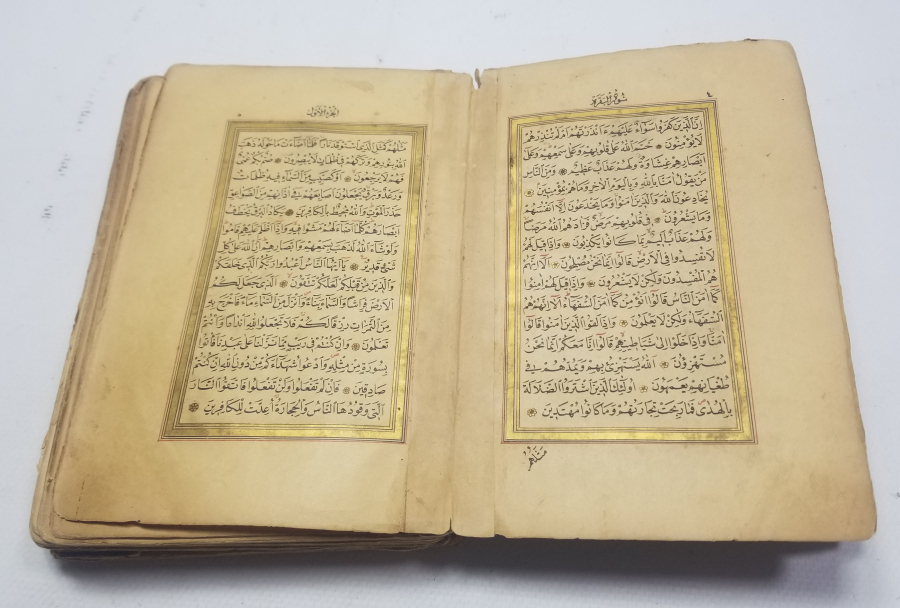 ٤
سورة البقرة
ان الذين كفروا سواء عليهم ءانذرتهم ام لم تنذرهم
لا يؤمنون ختم الله على قلوبهم وعلى سمعهم وعلى
ابصارهم غشاوة ولهم عذاب عظيم ومن الناس
من يقول امنا بالله وباليوم الاخر وما هم بمؤمنين
يخادعون الله والذين امنوا وما يخدعون الا انفسهم
وما يشعرون في قلوبهم مرض فزادهم الله مرضا
ولهم عذاب اليم بما كانوا يكذبون واذا قيل لهم
لا تفسدوا في الارض قالوا انما نحن مصلحون الا انهم
هم المفسدون ولكن لا يشعرون واذا قيل لهم امنوا
كما امن الناس قالوا انؤمن كما امن السفهاء الا انهم هم
السفهاء ولكن لا يعلمون واذا لقوا الذين امنوا قالوا
امنا واذا خلوا الى شياطينهم قالوا انا معكم انما نحن
مستهزؤن الله يستهزئ بهم ويمدهم في
طغيانهم يعمهون اولئك الذين اشتروا الضلالة
بالهدى فما ربحت تجارتهم وما كانوا مهتدين
مثلهم
الجزء الاول
مثلهم كمثل الذي استوقد نارا فلما اضاءت ما حوله ذهب
الله بنورهم وتركهم في ظلمات لا يبصرون صم بكم عمي
فهم لا يرجعون او كصيب من السماء فيه ظلمات
ورعد وبرق يجعلون اصابعهم في اذانهم من الصواعق
حذر الموت والله محيط بالكافرين يكاد البرق يخطف
ابصارهم كلما اضاء لهم مشوا فيه واذا اظلم عليهم قاموا
ولو شاء الله لذهب بسمعهم وابصارهم ان الله على كل
شيء قدير يا ايها الناس اعبدوا ربكم الذي خلقكم
والذين من قبلكم لعلكم تتقون الذي جعل لكم
الارض فراشا والسماء بناء وانزل من السماء ماء فاخرج به
من الثمرات رزقا لكم فلا تجعلوا لله اندادا وانتم
تعلمون وان كنتم في ريب مما نزلنا على عبدنا فأتوا
بسورة من مثله وادعوا شهداءكم من دون الله ان كنتم
صادقين فان لم تفعلوا ولن تفعلوا فاتقوا النار
التي وقودها الناس والحجارة أعدت للكافرين